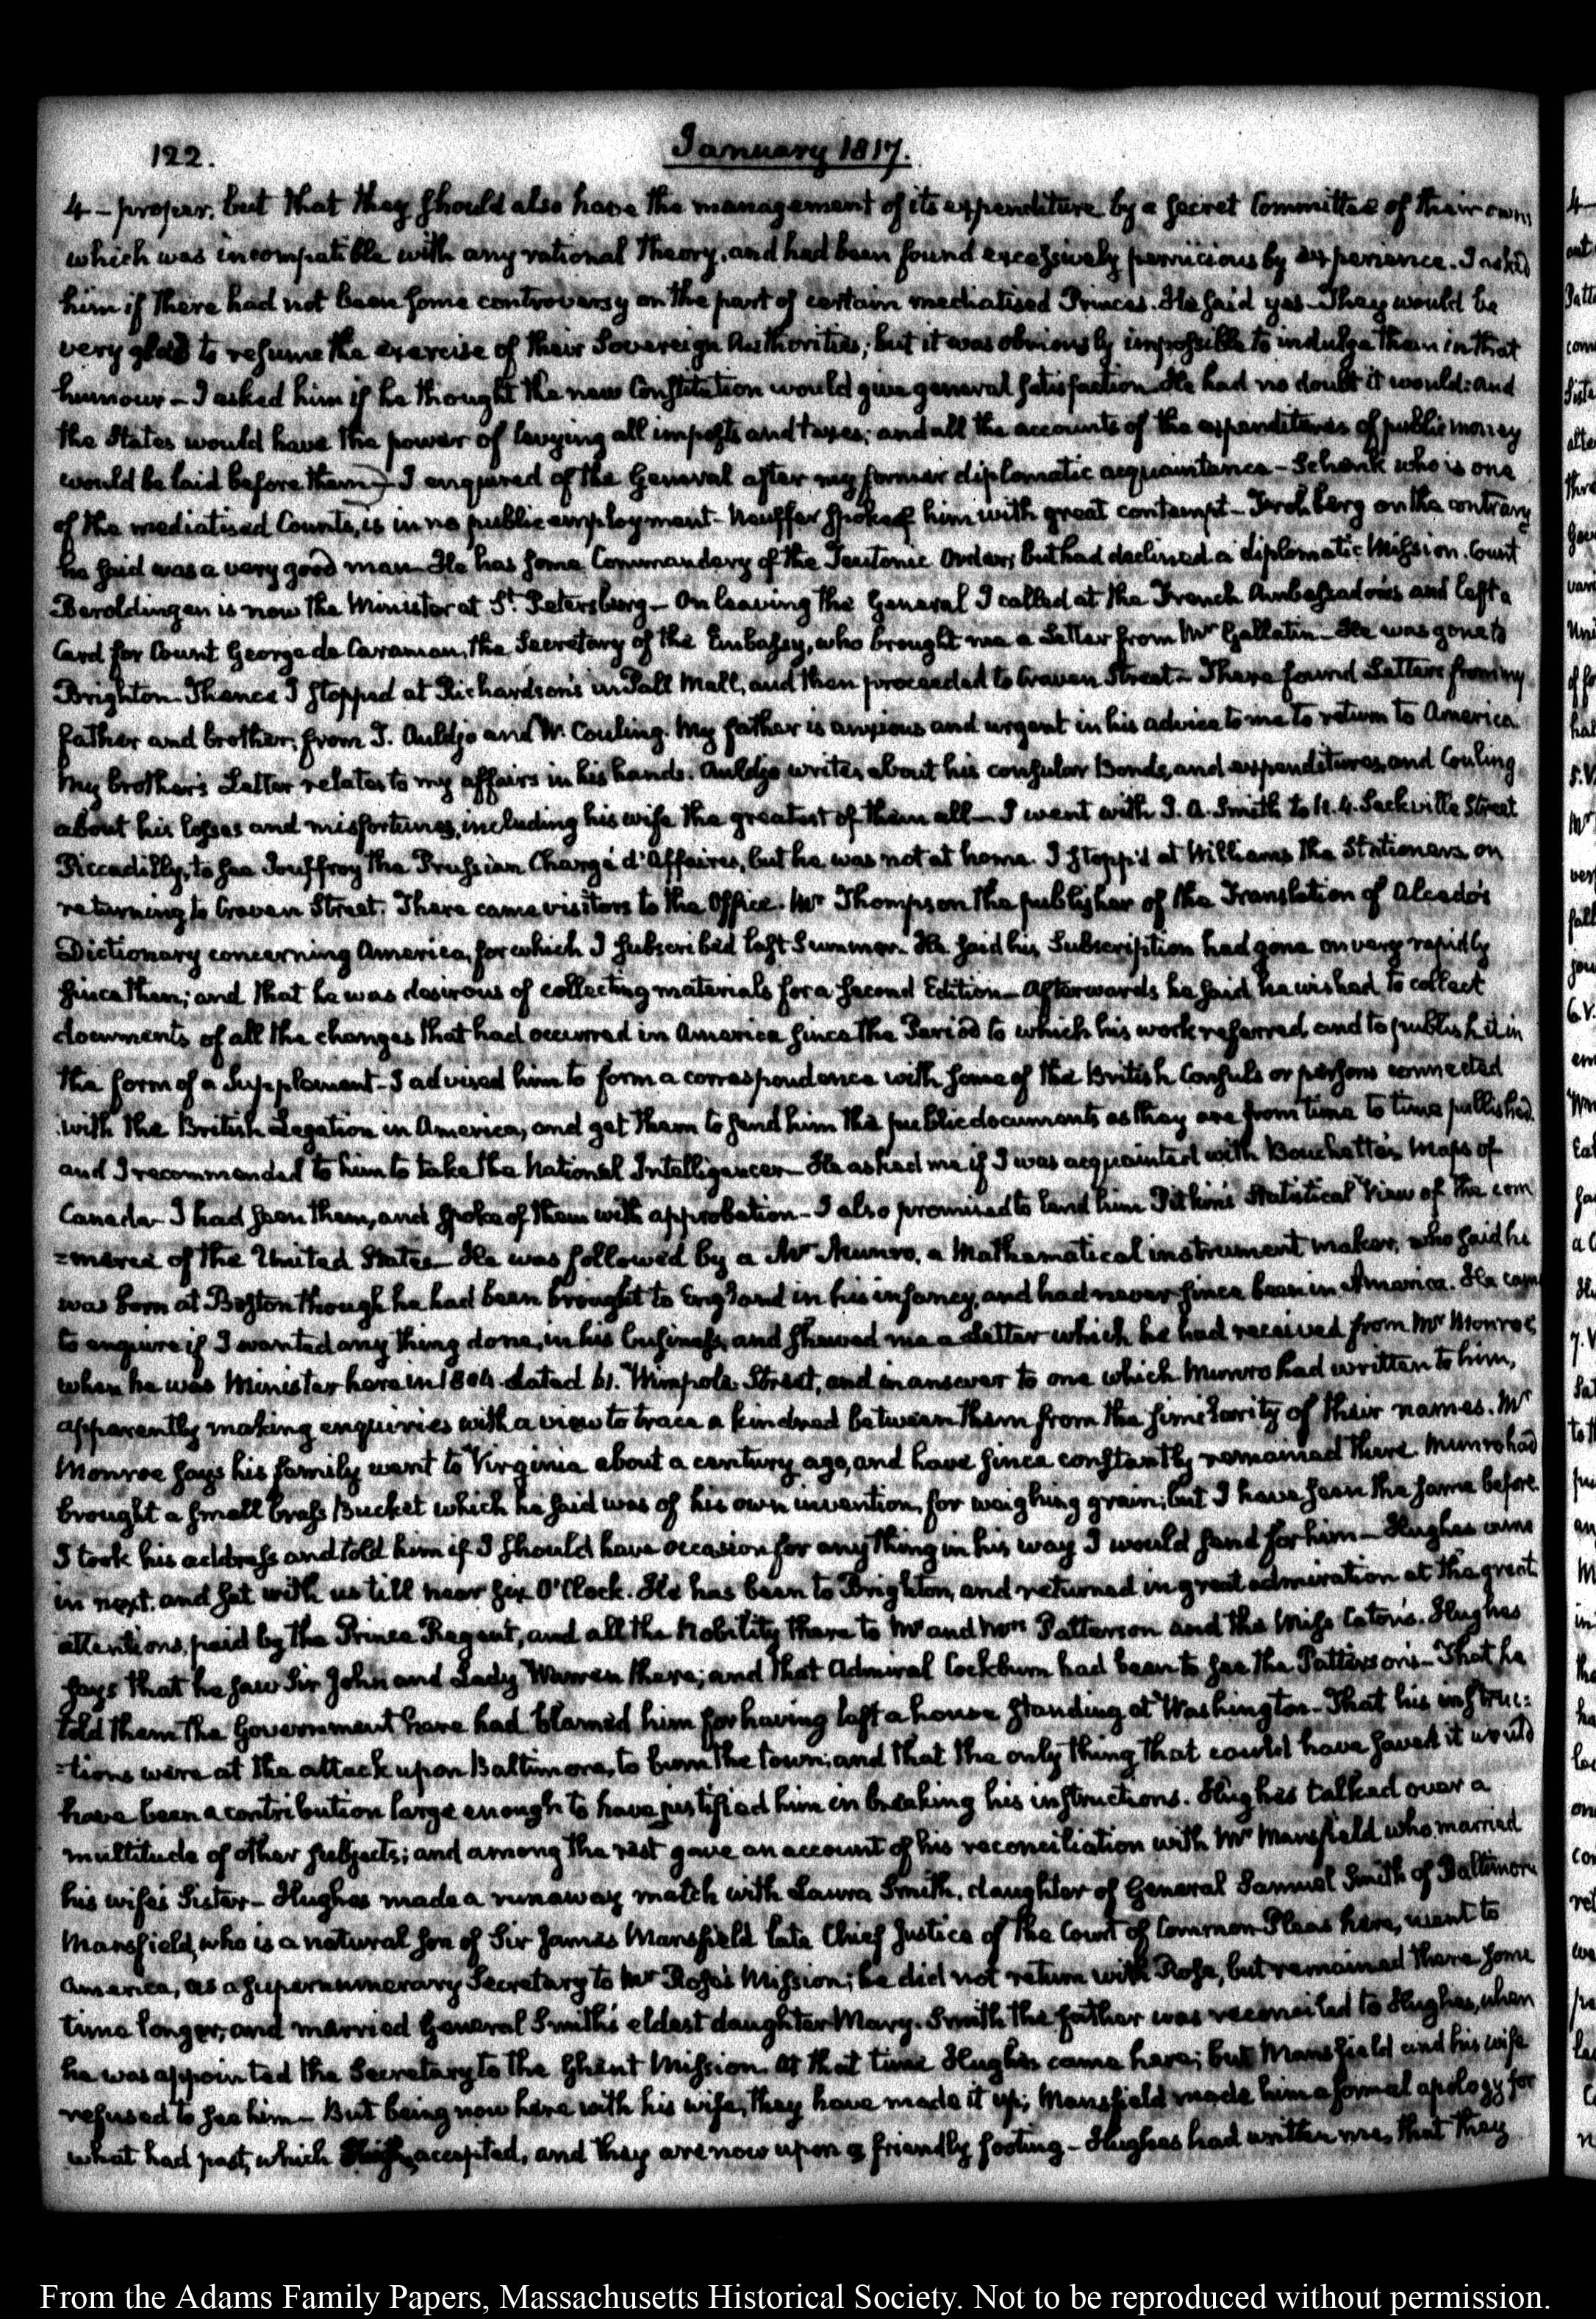 122.
January 1817.
4 - proper, but that they should also have the management of its expenditure by a secret Committee of their own,
which was incompatible with any rational theory, and had been found excessively pernicious by experience. I asked
him if there had not been some controversy on the part of certain mediatised Princes. He said yes - They would be
very glad to resume the exercise of their Sovereign Authorities; but it was obviously impossible to indulge them in that
humour - I asked him if he thought the new Constitution would give general satisfaction - He had no doubt it would: and
the States would have the power of levying all imposts and taxes; and all the accounts of the expenditures of public money
would be laid before them - I enquired of the General after my former diplomatic acquaintance - Schenk who is one
of the mediatised Counts, is in no public employment - Neuffer spoke of him with great contempt - Frohberg on the contrary
he said was a very good man - He has some Commandery of the Teutonic Order; but had declined a diplomatic Mission. Count
Beroldingen is now the Minister at St. Petersburg - On leaving the General I called at the French Ambassador's and left a
Card for Count George de Caraman, the Secretary of the Embassy, who brought me a Letter from Mr Gallatin - He was gone to
Brighton - Thence I stopped at Richardson's in Pall Mall, and then proceeded to Craven Street - There found Letters from my
father and brother; from J. Auldjo and W. Couling. My father is anxious and urgent in his advice to me to return to America.
My brother's Letter relates to my affairs in his hands. Auldjo writes about his consular Bonds, and expenditures, and Couling
about his losses and misfortunes, including his wife the greatest of them all - I went with J. A. Smith to N. 4. Sackville Street
Piccadilly, to see Jouffroy the Prussian Chargé d'Affaires, but he was not at home. I stopp'd at Williams the Stationers, on
returning to Craven Street. There came visitors to the Office. Mr Thompson the publisher of the Translation of Alcedo's
Dictionary concerning America, for which I subscribed last Summer - He said his Subscription had gone on very rapidly
since then; and that he was desirous of collecting materials for a second Edition - Afterwards he said he wished to collect
documents of all the changes that had occurred in America since the Period to which his work referred and to publish it in
the form of a Supplement - I advised him to form a correspondence with some of the British Consuls or persons connected
with the British Legation in America, and get them to send him the public documents as they are from time to time published
and I recommended to him to take the National Intelligencer - He asked me if I was acquainted with Bouchette's Maps of
Canada - I had seen them, and spoke of them with approbation - I also promised to lend him Pitkin's Statistical View of the com
=merce of the United States - He was followed by a Mr Munro, a Mathematical instrument maker, who said he
was born at Boston though he had been brought to England in his infancy, and had never since been in America. He came
to enquire if I wanted any thing done, in his business, and shewed me a Letter which he had received from Mr Monroe
when he was Minister here in 1804. dated 61. Wimpole Street, and in answer to one which Munro had written to him,
apparently making enquiries with a view to trace a kindred between them from the similarity of their names. Mr
Monroe says his family went to Virginia about a century ago, and have since constantly remained there. Munro had
brought a small brass Bucket which he said was of his own invention, for weighing grain; but I have seen the same before.
I took his address and told him if I should have occasion for any thing in his way I would send for him - Hughes came
in next, and sat with us till near six O'Clock. He has been to Brighton, and returned in great admiration at the great
attentions paid by the Prince Regent, and all the Nobility there to Mr and Mrs Patterson and the Miss Caton's. Hughes
says that he saw Sir John and Lady Warren there; and that Admiral Cockburn had been to see the Patterson's - That he
told them the Government here had blamed him for having left a house standing at Washington - That his instruc=
=tions were at the attack upon Baltimore, to burn the town; and that the only thing that could have saved it would
have been a contribution large enough to have justified him in breaking his instructions. Hughes talked over a
multitude of other subjects; and among the rest gave an account of his reconciliation with Mr Mansfield who married
his wife's Sister - Hughes made a runaway match with Laura Smith, daughter of General Samuel Smith of Baltimore
Mansfield, who is a natural son of Sir James Mansfield late Chief Justice of the Court of Common Pleas here, went to
America, as a supernumerary Secretary to Mr Rose's Mission; he did not return with Rose, but remained there some
time longer; and married General Smith's eldest daughter Mary. Smith the father was reconciled to Hughes, when
he was appointed the Secretary to the Ghent Mission. At that time Hughes came here; but Mansfield and his wife
refused to see him - But being now here with his wife, they have made it up; Mansfield made him a formal apology for
what had past, which accepted, and they are now upon a friendly footing - Hughes had written me, that they
From the Adams Family Papers, Massachusetts Historical Society. Not to be reproduced without permission.